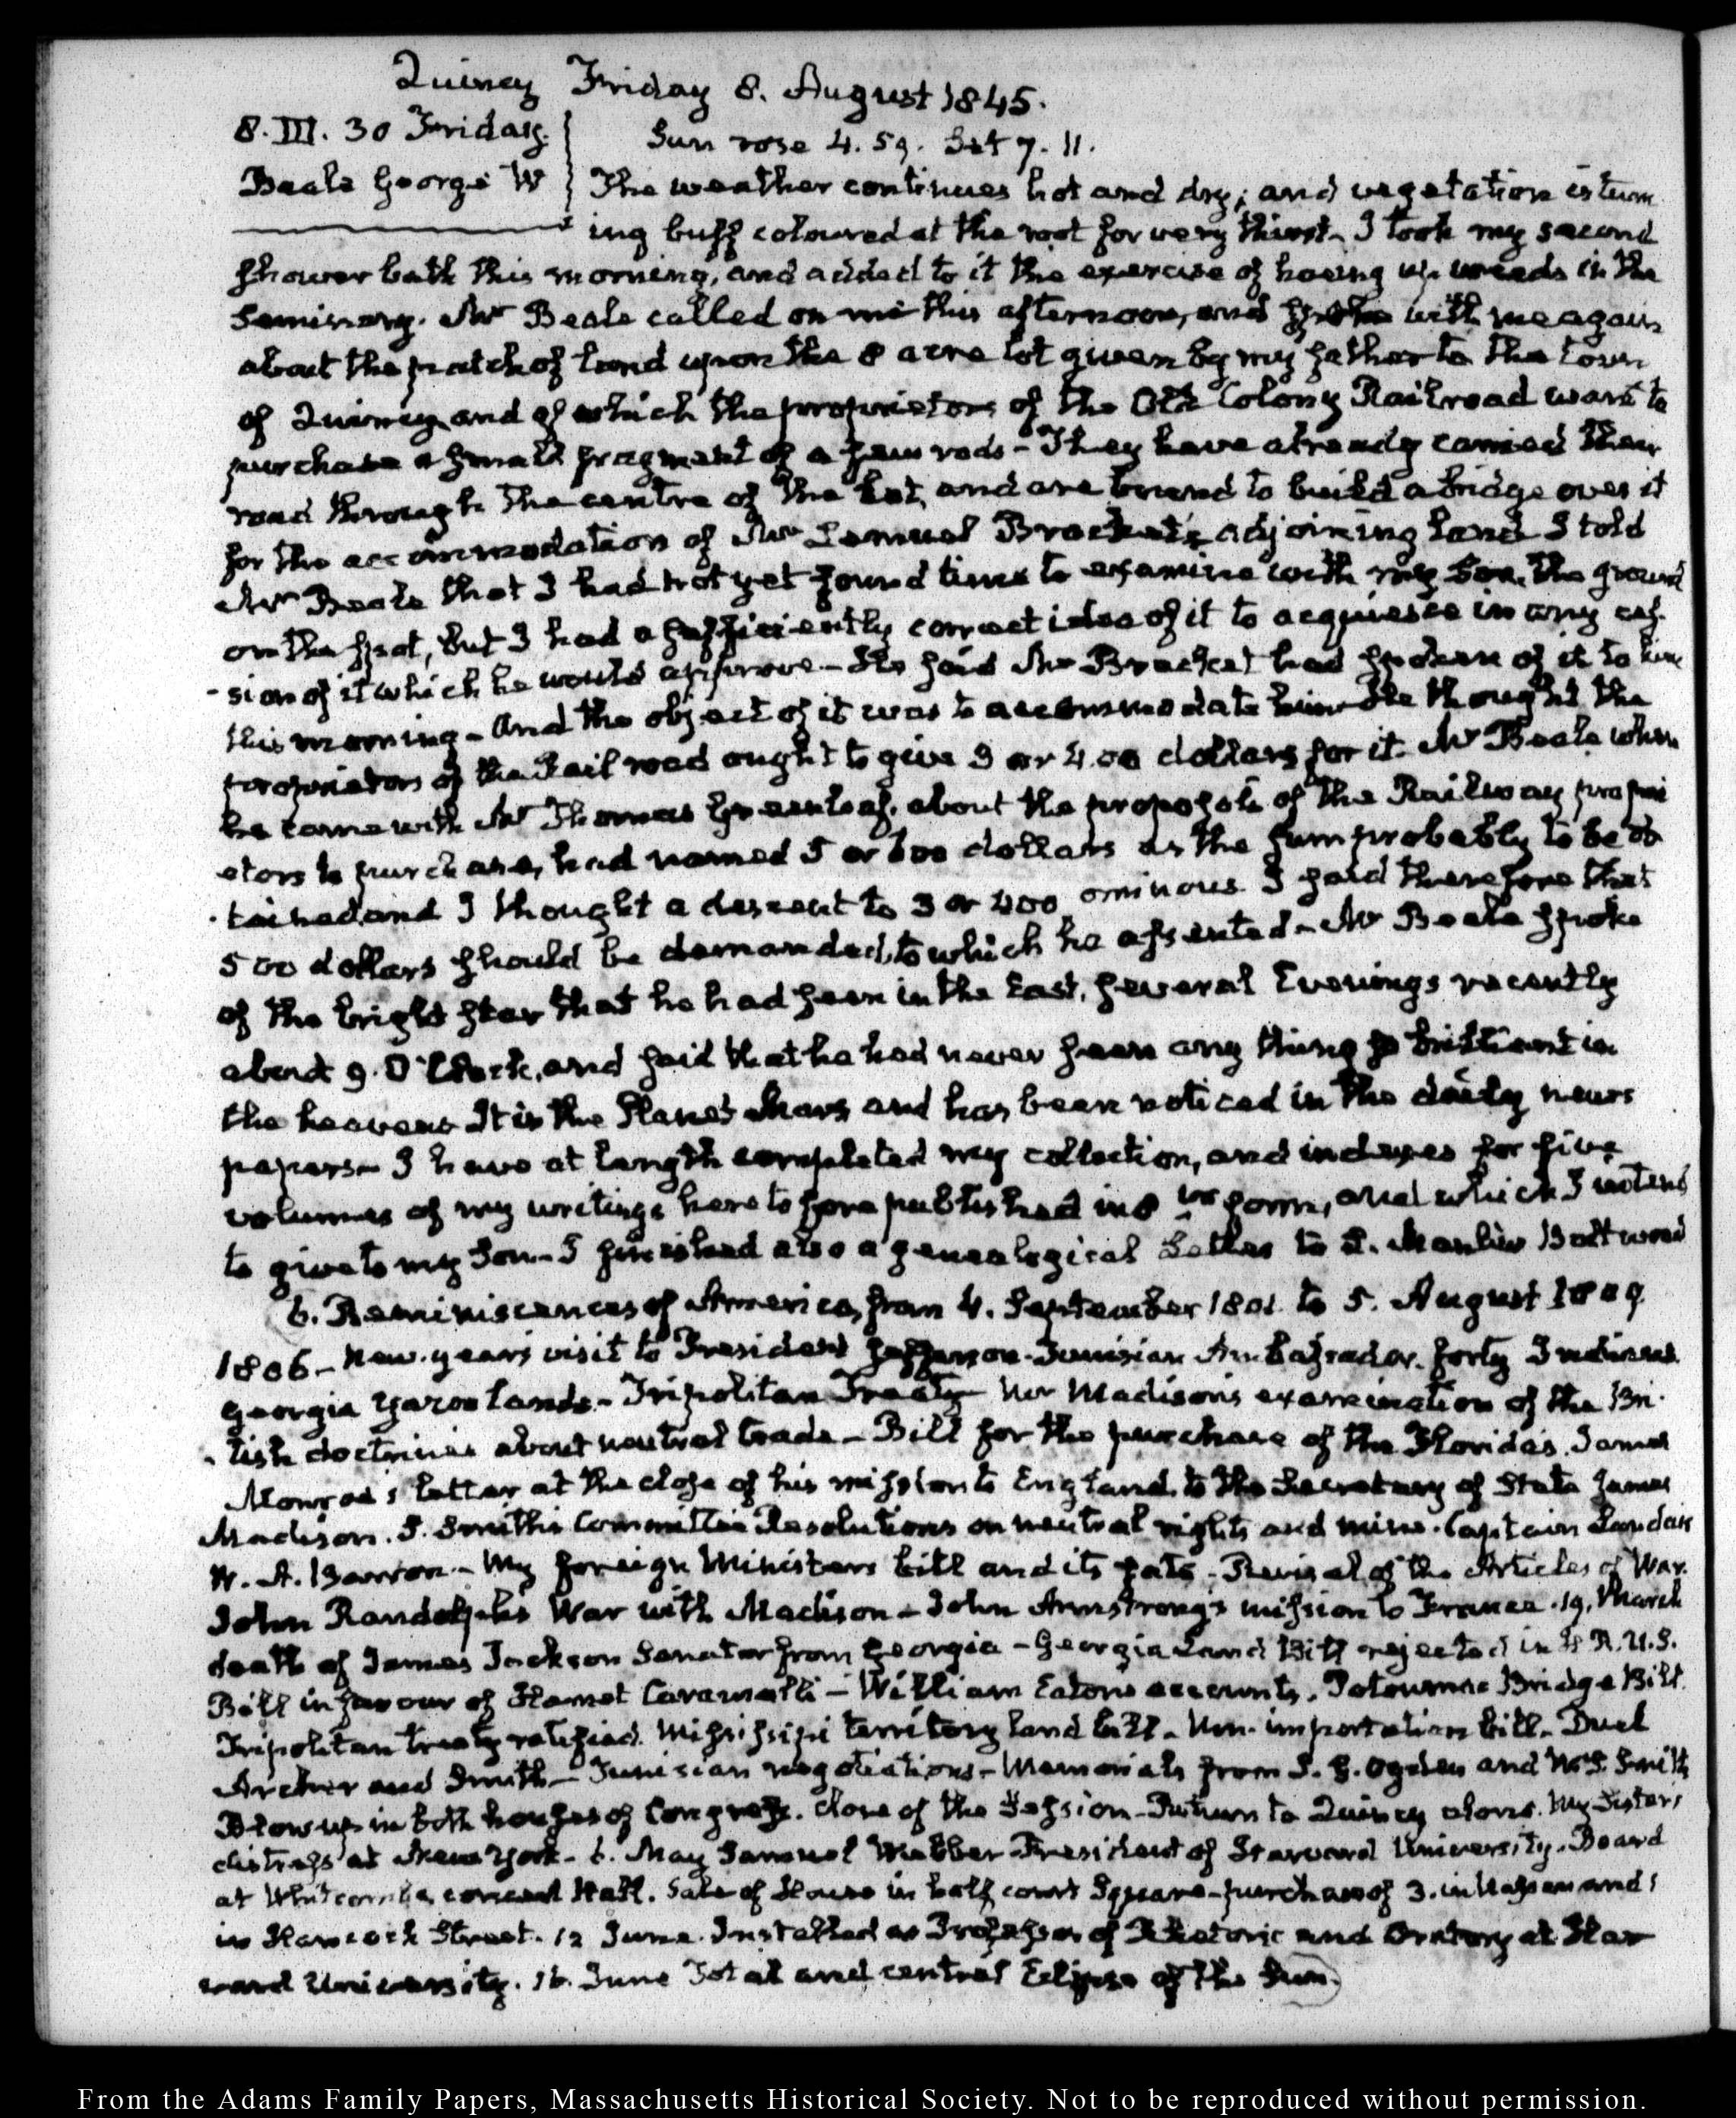 Quincy Friday 8. August 1845.
8. III. 30 Friday.
Sun rose 4. 59. Set 7. 11.
Beale George W
The weather continues hot and dry; and vegetation is turn
ing buff coloured at the root for very thirst. I took my second
shower bath this morning, and added to it the exercise of hoeing up weeds in the
Seminary. Mr Beale called on me this afternoon, and spoke with me again
about the patch of land upon the 8 acre lot given by my father to the town
of Quincy and of which the proprietors of the Old Colony Railroad want to
purchase a small fragment of a few rods - They have already carried their
road through the centre of the lot, and are bound to build a bridge over it
for the accommodation of Mr Lemuel Bracket's adjoining land I told
Mr Beale that I had not yet found time to examine with my Son, the ground
on the spot, but I had a sufficiently correct idea of it to acquiesce in any ces-
-sion of it which he would approve - He said Mr Bracket had spoken of it to him
this morning - And the object of it was to accommodate him. He thought the
proprietors of the Rail road ought to give 3 or 400 dollars for it. Mr Beale when
he came with Mr Thomas Greenleaf, about the proposals of the Railway propri
etors to purchase, had named 5 or 600 dollars as the sum probably to be ob
-tained and I thought a descent to 3 or 400 ominous I said therefore that
500 dollars should be demanded, to which he assented - Mr Beale spoke
of the bright star that he had seen in the East, several Evenings recently
about 9. O'Clock, and said that he had never seen any thing so brilliant in
the heavens It is the Planet Mars and has been noticed in the daily news
papers - I have at length completed my collection, and indexes for five
volumes of my writings heretofore published in 8 vo form, and which I intend
to give to my Son - I finished also a genealogical Letter to L. Manlius Boltwood
6. Reminiscences of America, from 4. September 1801. to 5. August 1809.
1806 - New. years visit to President Jefferson - Tunisian Ambassador. forty Indians
Georgia Yazoo Lands - Tripolitan Treaty - Mr Madison's examination of the Bri-
-tish doctrines about neutral trade - Bill for the purchase of the Floridas. James
Monroe's letter at the close of his mission to England, to the Secretary of State James
Madison. S. Smith's Committee Resolutions on neutral rights and mine. Captain Landais
W. A. Barron - My foreign Ministers bill and its fate - Revisal of the Articles of War.
John Randolph's War with Madison - John Armstrong's mission to France. 19. March
death of James Jackson Senator from Georgia - Georgia Land Bill rejected in H R. U. S.
Bill in favour of Hamet Caramalli - William Eaton's accounts. Potowmac Bridge Bill.
Tripolitan treaty ratified. Missisippi territory land bill - Non. importation bill - Duel
Archer and Smith - Tunisian negotiations - Memorials from S. G. Ogden and W. S. Smith
Blow up in both houses of Congress. Close of the Session - Return to Quincy alone. My Sister's
distress at New York - 6. May Samuel Webber President of Harvard University. Board
at Whitcomb's concert Hall. Sale of House in half court Square - purchase of 3. in Nassau and 1
in Hancock Street. 12 June. Installed as Professor of Rhetoric and Oratory at Har
vard University. 16. June Total and central Eclipse of the Sun.
From the Adams Family Papers, Massachusetts Historical Society. Not to be reproduced without permission.